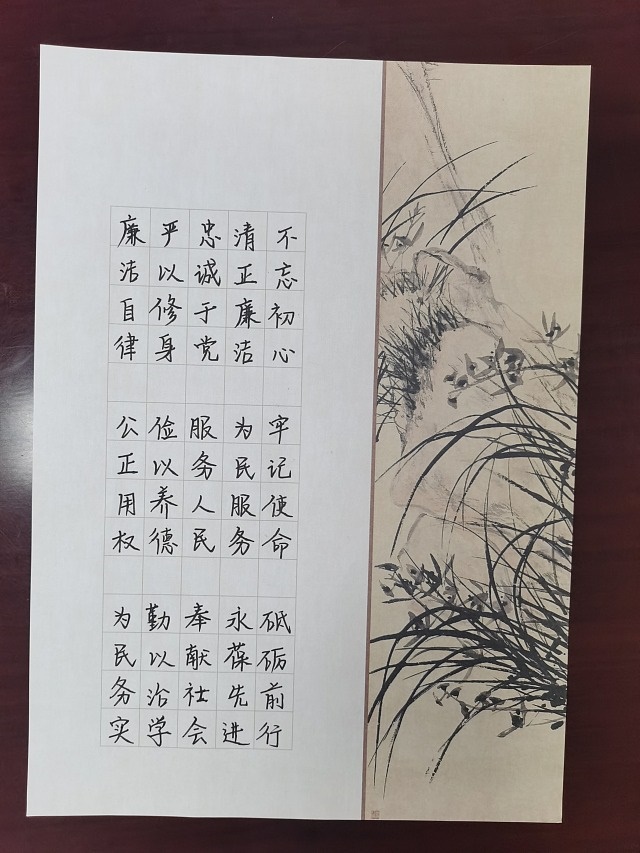 不忘初心 牢记使命 砥砺前行
清正廉洁 为民服务 永葆先进
忠诚于党 服务人民 奉献社会
严以修身 俭以养德 勤以治学
廉洁自律 公正用权 为民务实